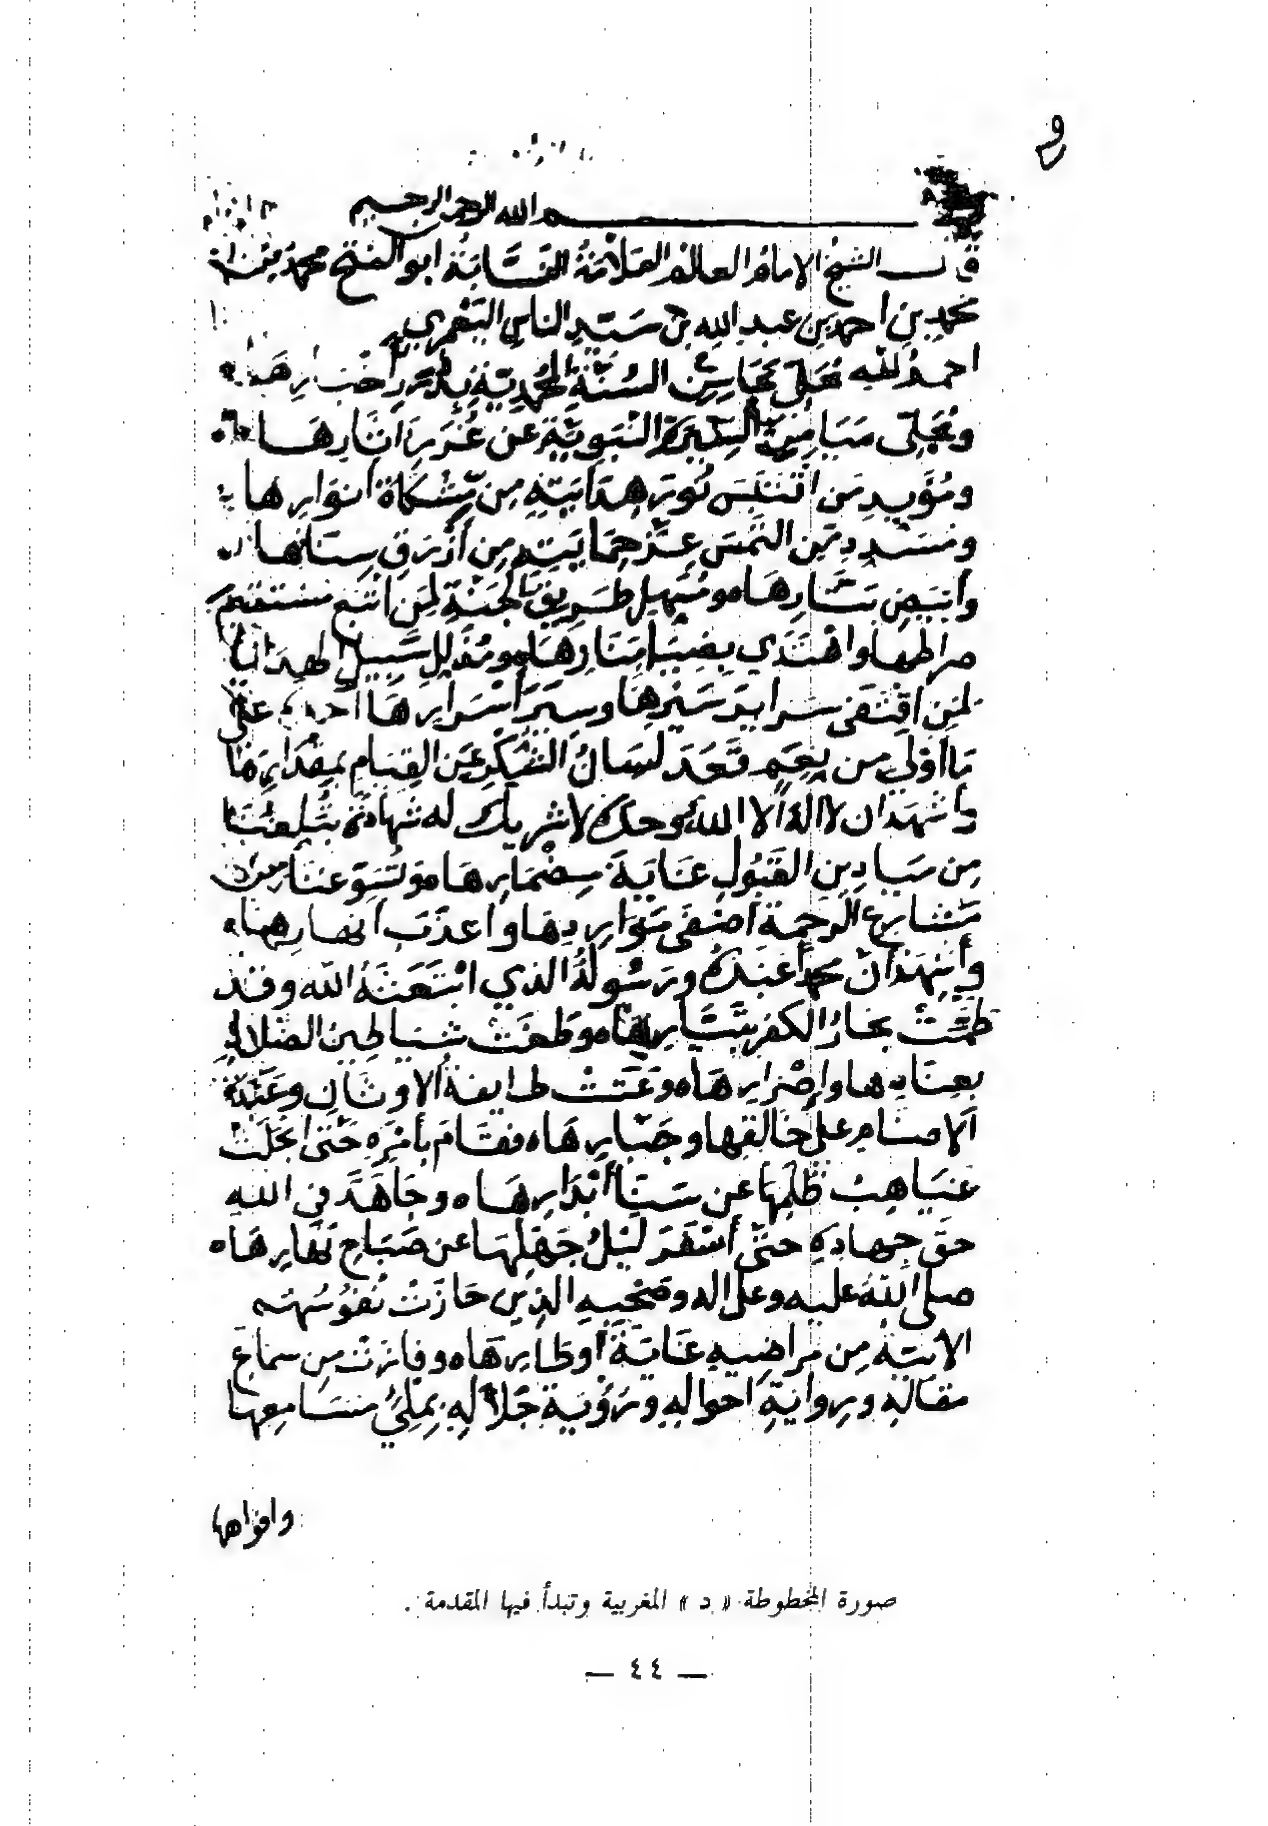 بسم الله الرحمن الرحيم
قال الشيخ الإمام العالم العلامة النسابة أبو الفتح محمد بن
محمد بن احمد بن عبد الله بن سيد الناس اليعمري
احمد لله محلي محاسن السنة المحمدية بدرر اخبارها
ومجلي ميامن السيرة النبوية عن غرر اثارها
ومؤيد من اقتبس نور هدايته من مشكاة انوارها
ومسدد من التمس عز حمايته من ازرق سنانها
وابيض بتارها ومسهل طريق الجنة لمن اتبع مستقيم
صراطها واهتدى بضياء منارها ومذلل سبيل الهداية
لمن اقتفى سرائد سيرها وسير اسرارها احمده على
ما اولى من نعم قعد لسان الشكر عن القيام بمقدارها
واشهد ان لا اله الا الله وحده لا شريك له شهادة تبلغنا
من ميادين القبول غاية مضمارها وتسوغنا من
مشارع الرحمة اصفى مواردها واعذب انهارها
وأشهد ان محمدا عبده ورسوله الذي ابتعثه الله وقد
طمت بحار الكفر بتيارها وطغت شياطين الضلال
بعنادها وإصرارها وعتت طايفة الاوثان وعبدة
الاصنام على خالقها وجبارها فقام بأمره حتى انجلت
غياهب ظلمها عن سنا أبدارها وجاهد في الله
حق جهاده حتى أسفر ليل جهلها عن صباح نهارها
صلى الله عليه وعلى اله وصحبه الذين حازت نفوسهم
الابية من مراضيه غاية أوطارها وفازت من سماع
مقاله ورواية احواله ورؤية جلاله بملئ مسامعها
وافواهها
صورة المخطوطة « د » المغربية وتبدأ فيها المقدمة .
— ٤٤ —